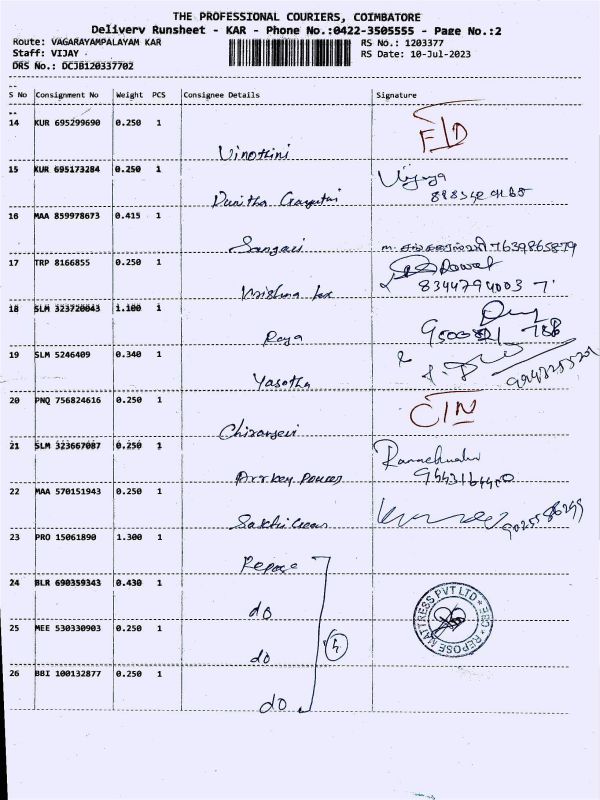 THE PROFESSIONAL COURIERS, COIMBATORE
Delivery Runsheet - KAR - Phone No.:0422-3505555 - Page No.:2
Route: VAGARAYAMPALAYAM KAR RS No.: 1203377
Staff: VIJAY RS Date: 10-Jul-2023
DRS No.: DCJB120337702
S No Consignment No Weight PCS Consignee Details Signature
14 KUR 695299690 0.250 1
Vinothini
15 KUR 695173284 0.250 1 Vijaya
Punitha Gayatri
16 MAA 859978673 0.415 1
Sangavi 7639865879
17 TRP 8166855 0.250 1
Krishna tex 8344794003
18 SLM 323720043 1.100 1
Raja
19 SLM 5246409 0.340 1
Yasotha
20 PNQ 756824616 0.250 1
Chiranjevi
21 SLM 323667087 0.250 1
Arrkey Power
22 MAA 570151943 0.250 1
Sakthi 9025586249
23 PRO 15061890 1.300 1
Repose
24 BLR 690359343 0.430 1
do
REPOSE MATTRESS PVT LTD CBE
25 MEE 530330903 0.250 1
do
4
26 BBI 100132877 0.250 1
do